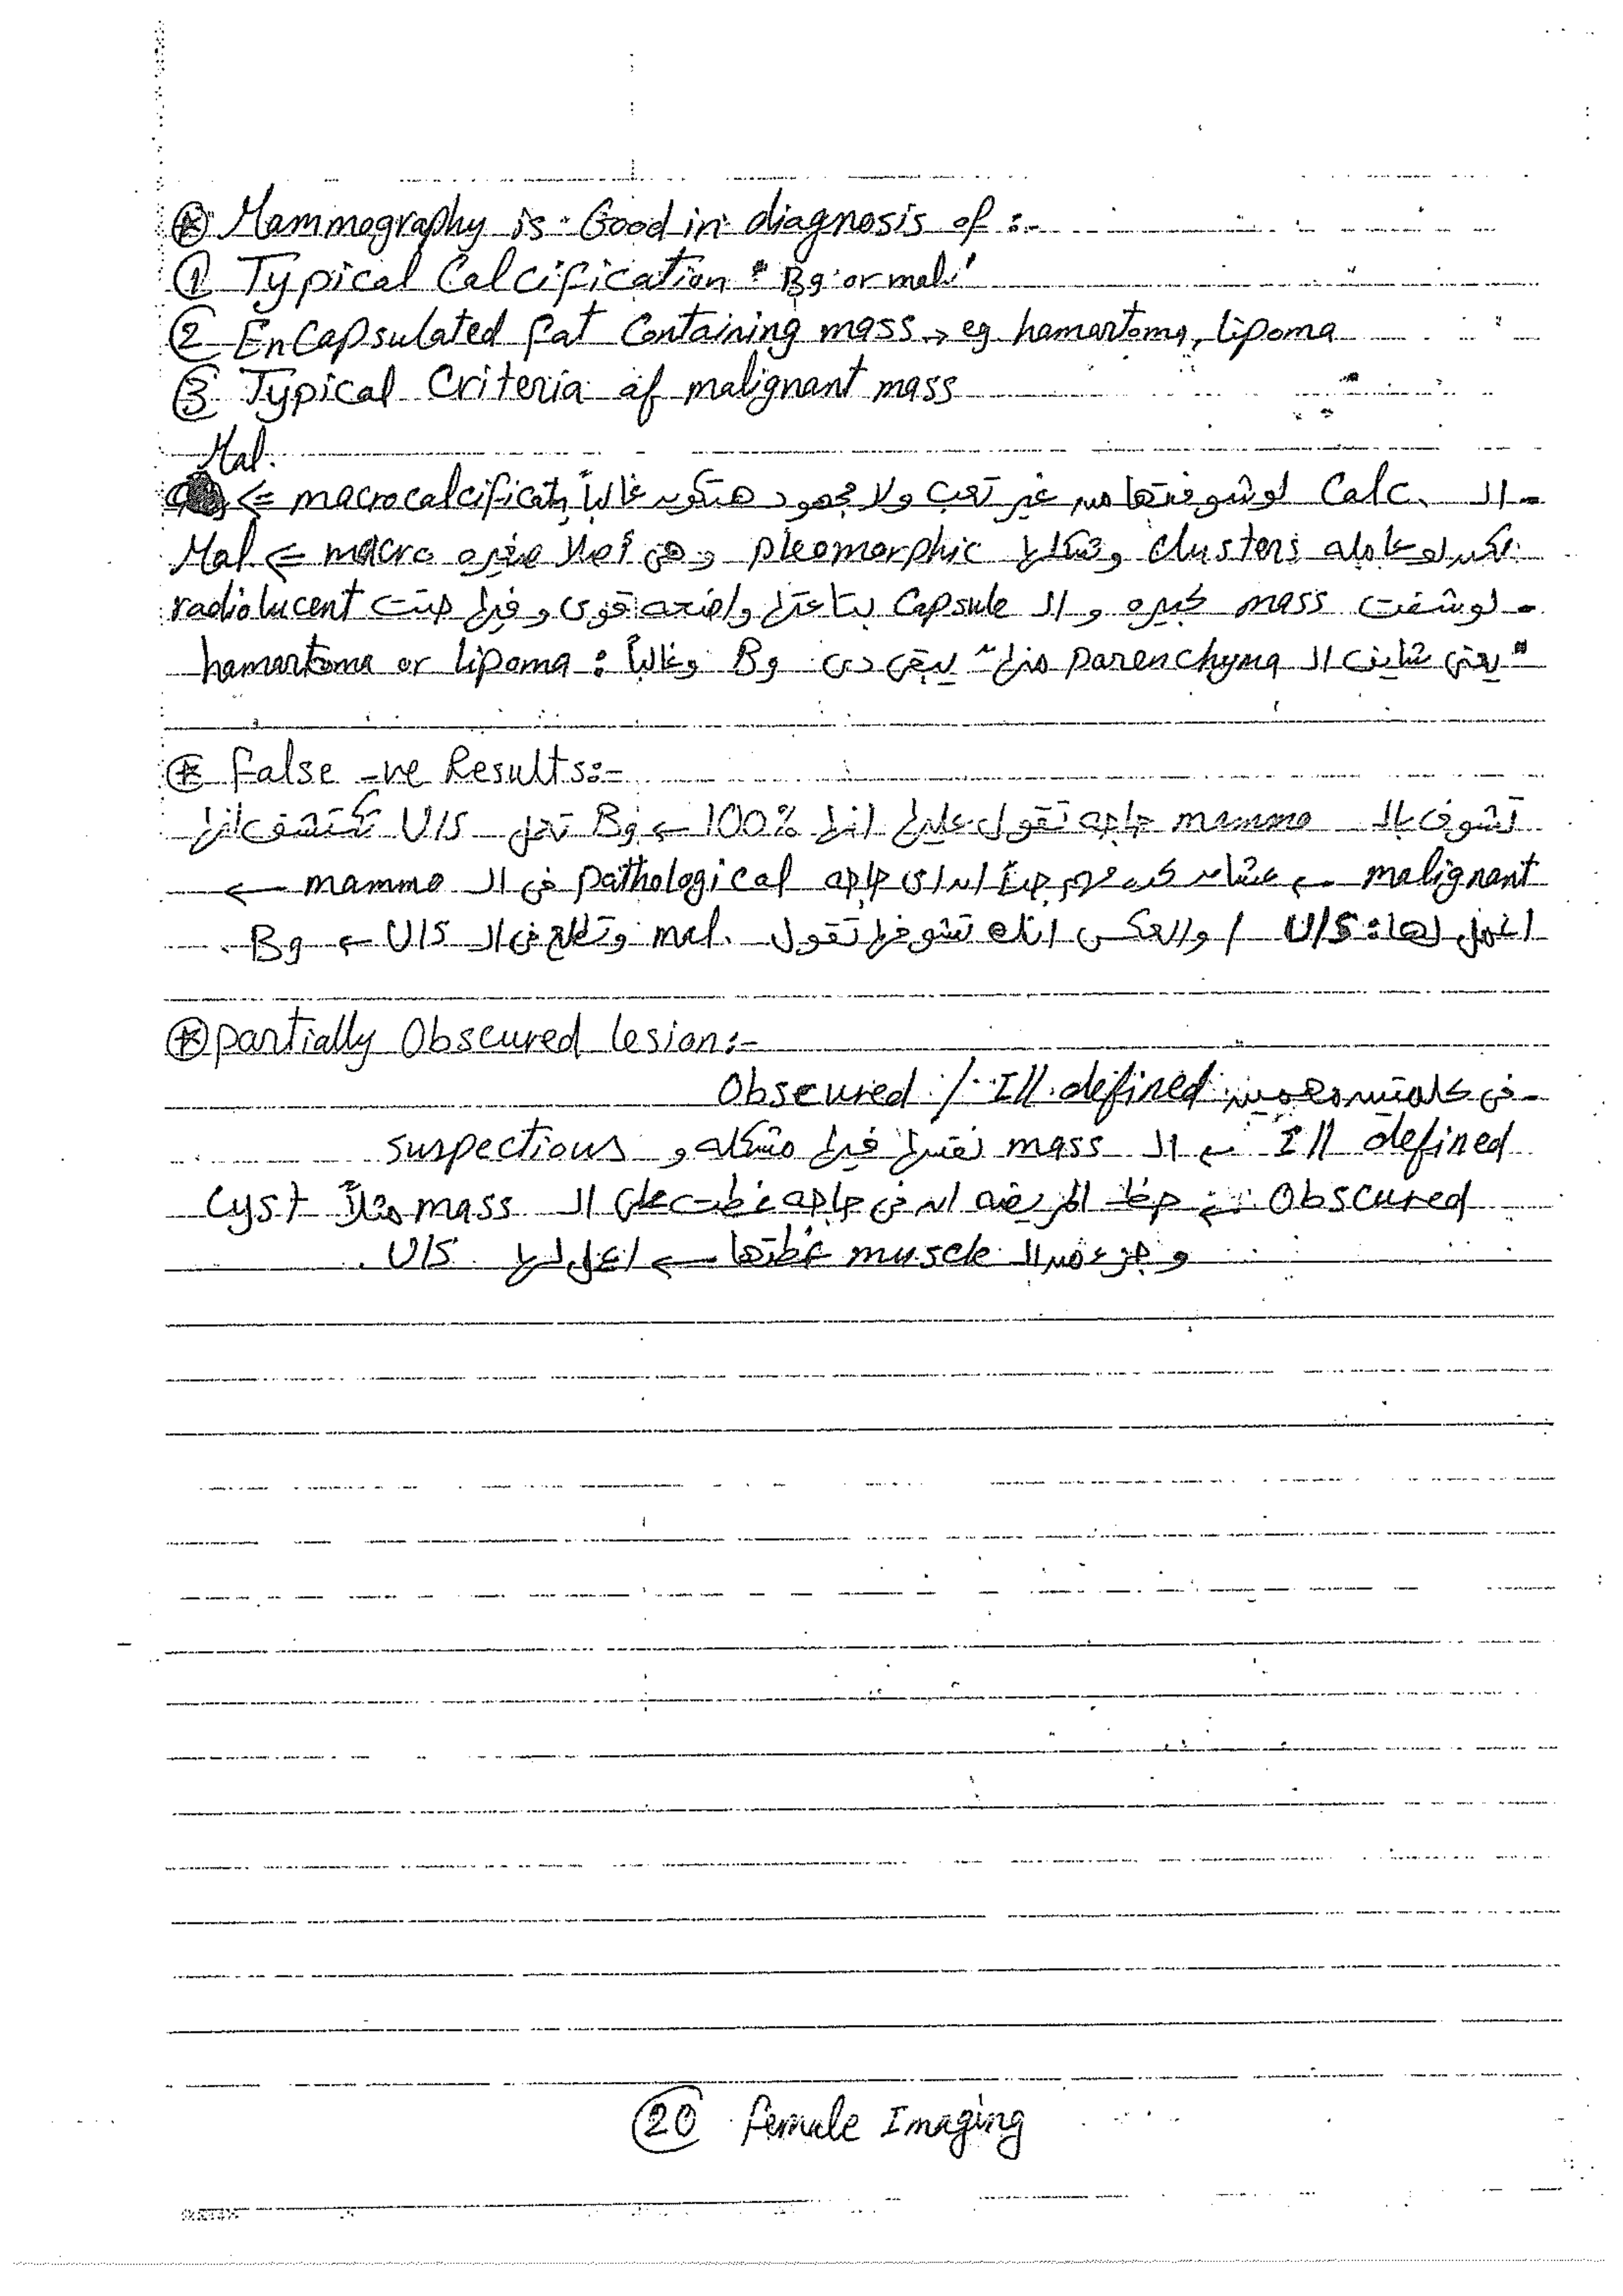 ⊛ Mammography is Good in diagnosis of :-
① Typical Calcification "Bg or mali"
② EnCapsulated fat Containing mass → eg hamartoma, lipoma
③ Typical Criteria of malignant mass
Mal.
- الـ Calc. لو شوفتها من غير تعب ولا مجهود هتكون غالباً macrocalcificat ⇐
لو عامله clusters وشكلها pleomorphic وهى أصلا صغيره macro ⇐ Mal.
- لو شفت mass كبيره و الـ Capsule بتاعتها واضحه قوى وفيها حتت radiolucent
"يعنى شايف الـ parenchyma منها" يبقى دى Bg وغالباً : hamartoma or lipoma
⊛ False -ve Results:-
تشوف بالـ mammo حاجه تقول عليها انها 100% ← Bg تعمل U/S تكتشف انها
malignant ← عشان كده مهم جداً ان اى حاجه pathological فى الـ mammo ←
اعمل لها : U/S / والعكس انك تشوفها تقول mal. وتطلع فى الـ U/S ← Bg .
⊛ partially Obscured lesion:-
- فى كلمتين مهمين Obscured / Ill defined
Ill defined ← الـ mass نفسها فيها مشكله و suspectious
Obscured ← حظ المريضه ان فى حاجه غطت على الـ mass مثلاً Cyst
و جزء من الـ muscle غطتها ← اعمل لها U/S .
⑳ female Imaging